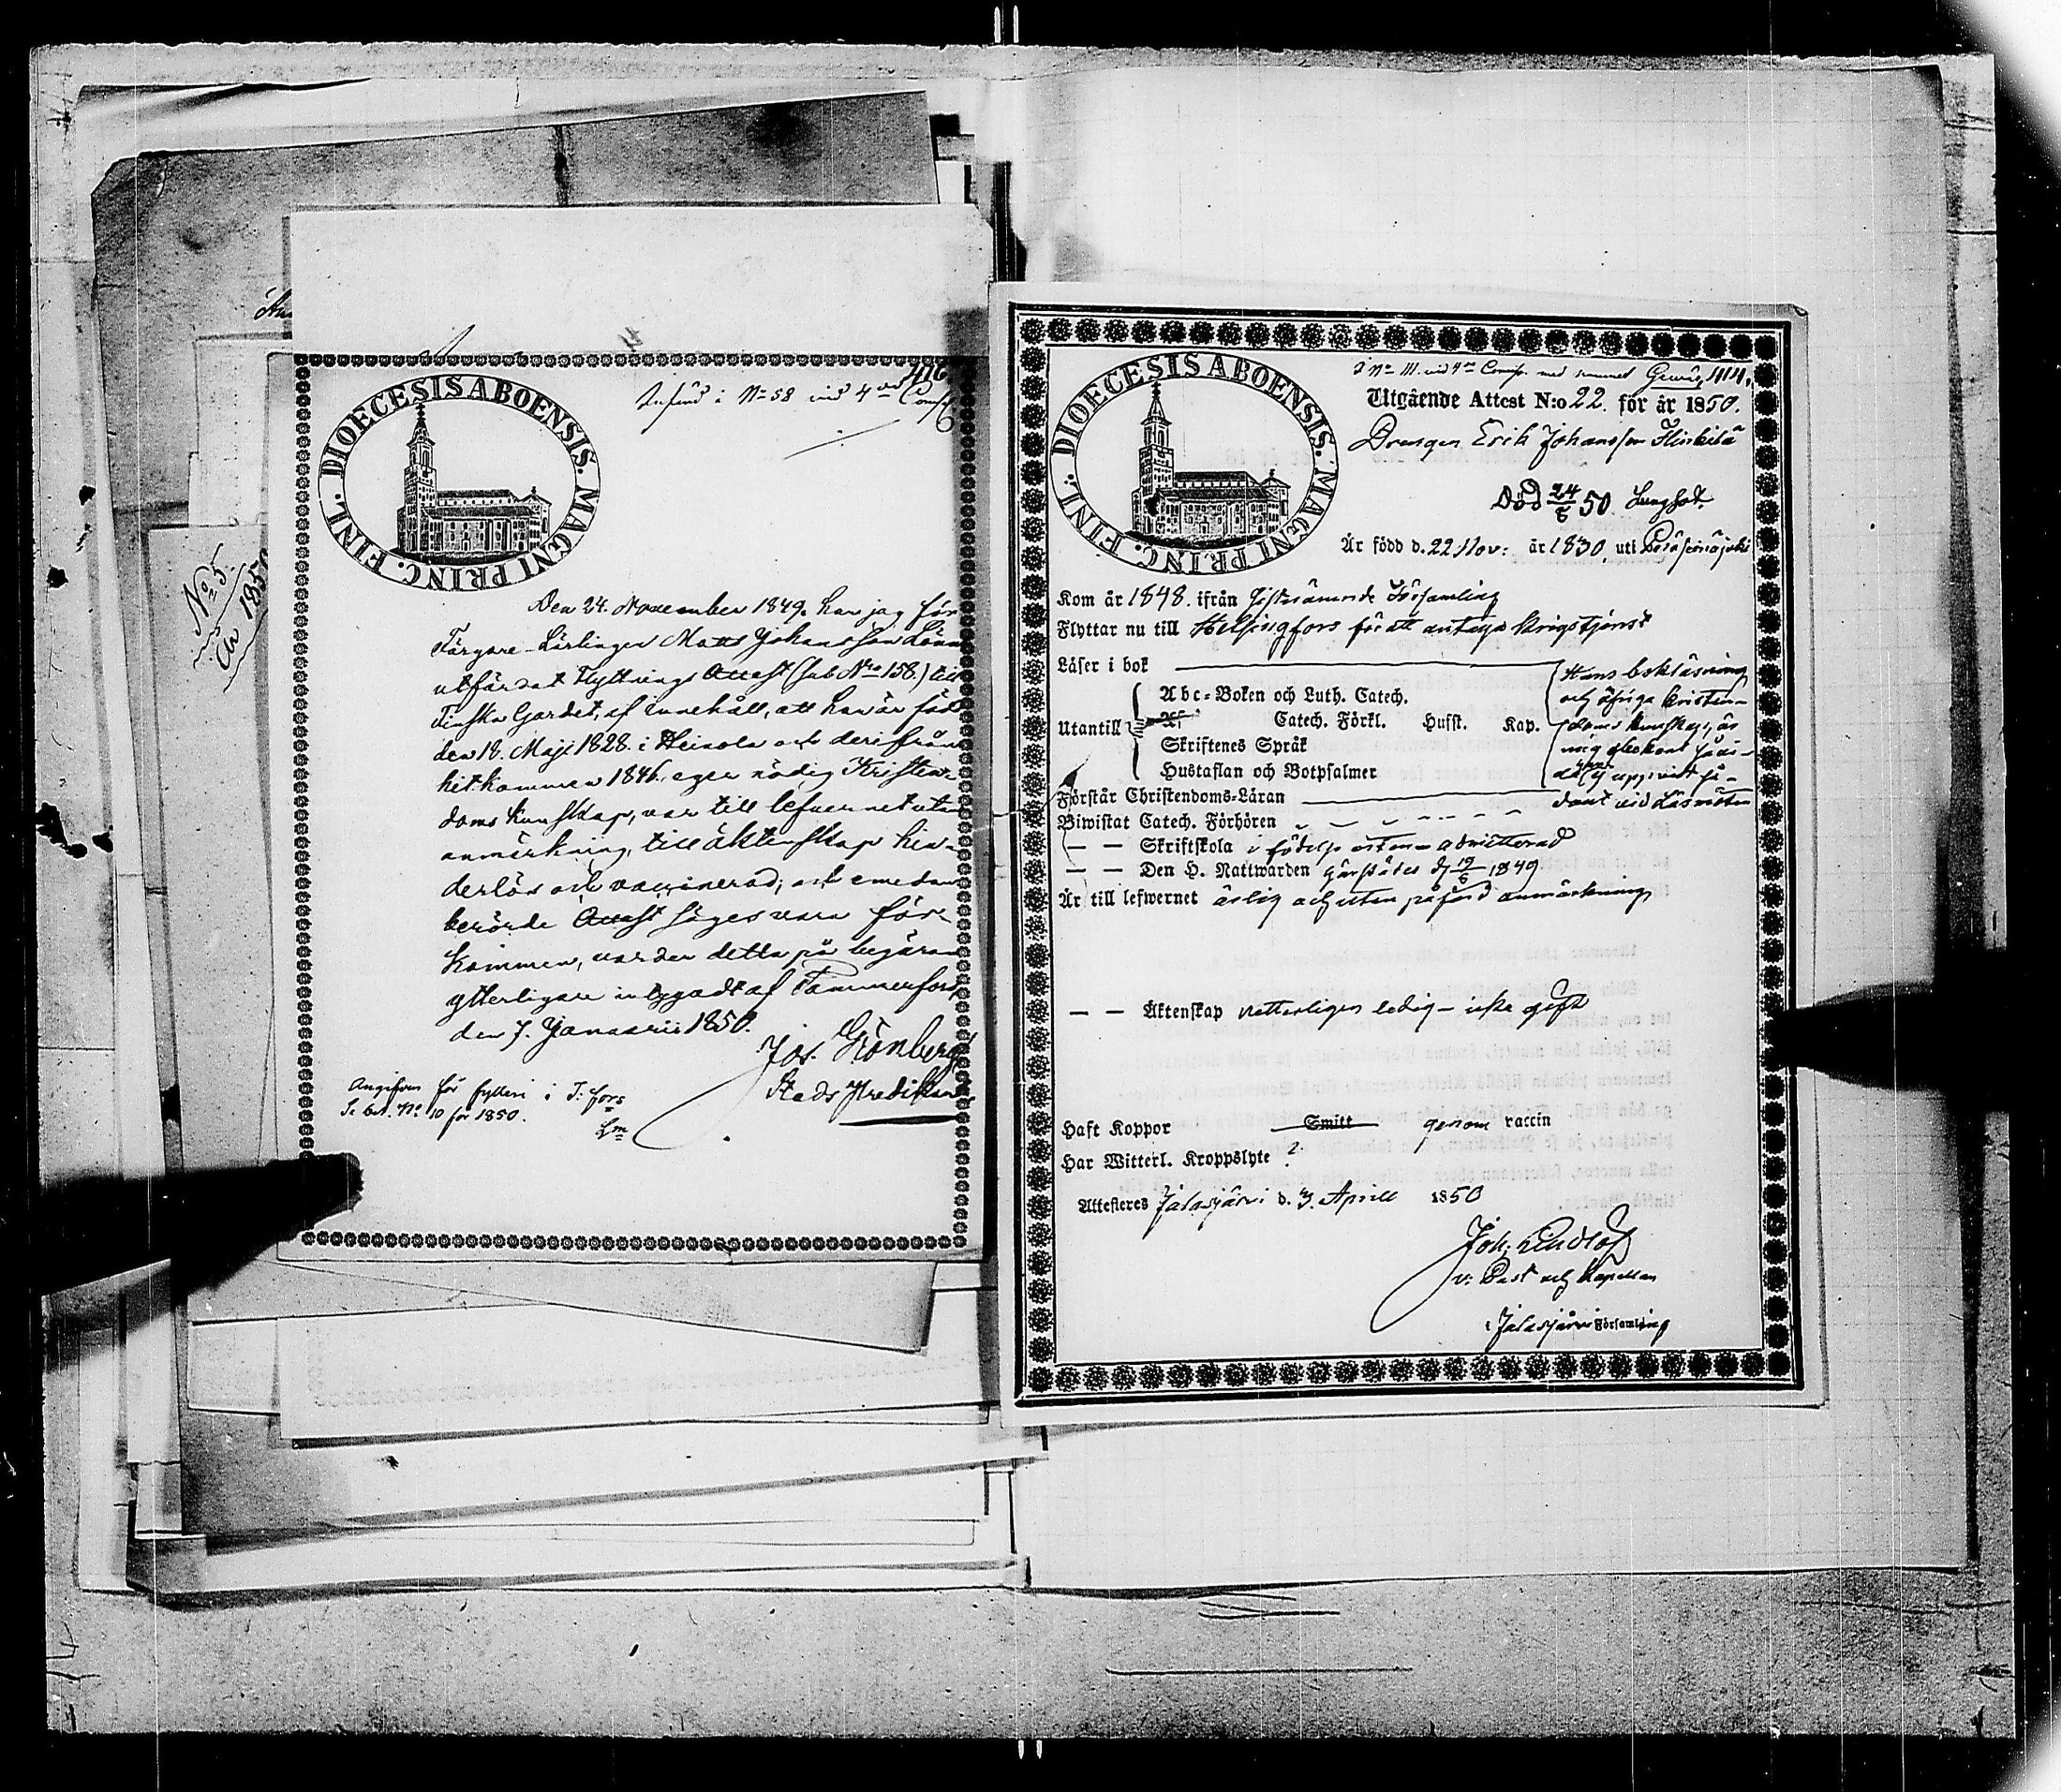 No 5.
år 1850
416
DIOECESIS ABOENSIS. MAGNI PRINC. FINL.
Införd i No 58 vid 4de Comp.
Den 24. November 1849. har jag för
Färgare-Lärlingen Matts Johansson
utfärdat Flyttnings Attest (sub Nro 158.) till
Finska Gardet, af innehåll, att han är född
den 18. Maji 1828. i Heinola och derifrån
hitkommen 1846. eger nödig Kristen-
doms kunskap, var till lefvernet utan
anmärkning, till äktenskap hin-
derlös och vaccinerad; och emedan
berörde Attest säges vara för-
kommen, varder detta på begäran
ytterligare intygadt af Tammerfors
den 7. Januarii 1850.
Jos. Grönberg
Stads Predikant
Angifven för fylleri i T:fors
Se bet. No 10 för 1850.
DIOECESIS ABOENSIS. MAGNI PRINC. FINL.
i No 111. vid 4de Comp. med namnet 414.
Utgående Attest N:o 22. för år 1850.
Drengen Erik Johansson
Död 24/8 50 Lungsot.
Är född d. 22 Nov: år 1830, uti Peräseinäjoki
Kom år 1848. ifrån sistnämnde Församling
Flyttar nu till Helsingfors för att antaga krigstjenst
Läser i bok
Utantill
Abc-Boken och Luth. Catech.
Catech. Förkl. Husst. Kap.
Skriftenes Språk
Hustaflan och Botpsalmer
Hans bokläsning
och öfriga kristen-
doms kunskap, är
mig obekant, då
dant vid Läsmöten
Förstår Christendoms-Läran
Biwistat Catech. Förhören
— — Skriftskola i födelse orten admitterad
— — Den H. Nattwarden 1849
Är till lefwernet ärlig och utan påförd anmärkning
— — Äktenskap vetterligen ledig – icke gift
Haft Koppor Smitt genom vaccin
Har Witterl. Kroppslyte ?
Attesteres Jalasjärvi d. 3. Aprill 1850
Joh. Lindlöf
v: Past och Kapellan
i Jalasjärvi Församling